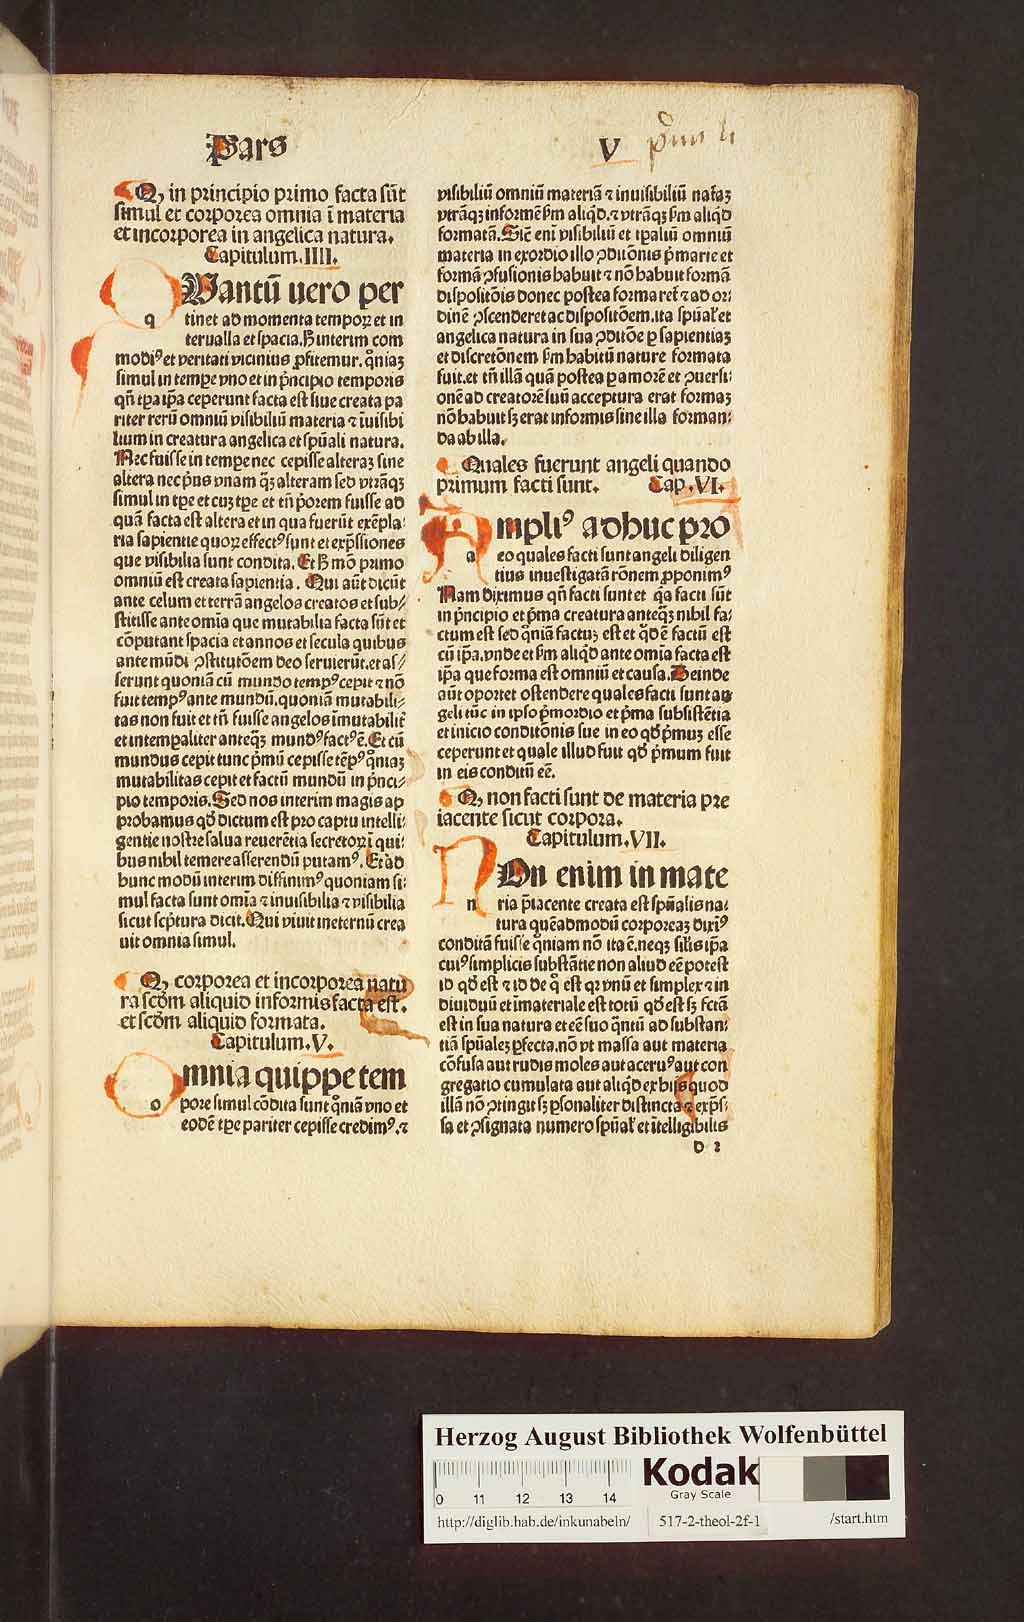 Pars
V
Q, in principio primo facta sūt
simul et corporea omnia ī materia
et incorporea in angelica natura.
Capitulum .IIII.
QUantū uero per
q tinet ad momenta tempoꝝ et in
terualla et spacia. interim com
modiꝰ et veritati vicinius ꝓfitemur. qͦniaꝫ
simul in tempe vno et in pͥncipio temporis
qn̄ tpa ip̄a ceperunt facta est siue creata pa
riter rerū omniū visibiliū materia ⁊ īuisibi
lium in creatura angelica et spūali natura.
Nec fuisse in tempe nec cepisse alteraꝫ sine
altera nec pͥus vnam qꝫ alteram sed vtrāqꝫ
simul in tpe et cuꝫ tpe et tn̄ pͥorem fuisse ad
quā facta est altera et in qua fuerūt exēpla-
ria sapientie quoꝝ effectꝰ sunt et exp̄ssiones
que visibilia sunt condita. Et mō primo
omniū est creata sapientia. Qui aūt dicūt
ante celum et terrā angelos creatos et sub-
stitisse ante omīa que mutabilia facta sūt et
cōputant spacia et annos et secula quibus
ante mūdi ꝯstitutōem deo seruierūt. et as-
serunt quoniā cū mundo tempꝰ cepit ⁊ nō
fuit tempꝰ ante mundū. quoniā mutabili-
tas non fuit et tn̄ fuisse angelos īmutabilit̄
et intempaliter anteqꝫ mundꝰ factꝰ ē. Et cū
mundus cepit tunc pͥmū cepisse tēpꝰ qͦniaꝫ
mutabilitas cepit et factū mundū in pͥnci-
pio temporis. Sed nos interim magis ap
probamus qd̄ dictum est pro captu intelli-
gentie nostre salua reuerētia secretoꝝ ī qui-
bus nihil temere asserendū putamꝰ. Et ad
hunc modū interim diffinimꝰ quoniam si-
mul facta sunt omīa ⁊ inuisibilia ⁊ visibilia
sicut scp̄tura dicit. Qui viuit in eternū crea
uit omnia simul.
Q, corporea et incorporea natu
ra scd̄m aliquid informis facta est.
et scd̄m aliquid formata.
Capitulum .V.
Omnia quippe tem
o pore simul cōdita sunt qͦniā vno et
eodē tpe pariter cepisse credimꝰ. ⁊
visibiliū omniū materiā ⁊ inuisibiliū nat̄aꝫ
vtrāqꝫ informē fm aliqd. ⁊ vtrāqꝫ fm aliqd
formatā. Sic̄ eni visibiliū et tpaliū omniū
materia in exordio illo ꝯditōnis pͥmarie et
formā ꝯfusionis habuit ⁊ nō habuit formā
dispositōis donec postea forma ret̄ ⁊ ad or-
dinē ꝯscenderet ac dispositōem. ita spūal' et
angelica natura in sua ꝯditōe ꝑ sapientiaꝫ
et discretōnem fm habitū nature formata
fuit. et tn̄ illā quā postea ꝑ amorē et ꝯuersi-
onē ad creatorē suū acceptura erat formaꝫ
nō habuit sꝫ erat informis sine illa forman-
da ab illa.
Quales fuerunt angeli quando
primum facti sunt. Cap. VI.
Ampliꝰ adhuc pro
a eo quales facti sunt angeli diligen
tius inuestigatā rōnem ꝓponimꝰ
Nam diximus qn̄ facti sunt et qͣ facti sūt
in pͥncipio et pͥma creatura anteqꝫ nihil fa-
ctum est sed qͦniā factuꝫ est et qd̄ ē factū est
cū ip̄a. vnde et fm aliqd ante omīa facta est
ip̄a que forma est omniū et causa. Deinde
aūt oportet ostendere quales facti sunt an
geli tūc in ipso pͥmordio et pͥma subsistētia
et inicio conditōnis sue in eo qd̄ pͥmuꝫ esse
ceperunt et quale illud fuit qd̄ pͥmum fuit
in eis conditū eē.
Q, non facti sunt de materia pre
iacente sicut corpora.
Capitulum .VII.
NOn enim in mate
n ria p̄iacente creata est spūalis na-
tura quēadmodū corporeaꝫ diximꝰ
conditā fuisse qͦniam nō ita ē. neqꝫ sil'is ip̄a
cuiꝰ simplicis substātie non aliud eē potest
id qd̄ est ⁊ id de qͦ est qꝛ vnū et simplex ⁊ in
diuiduū et imateriale est totū qd̄ est sꝫ fctā
est in sua natura et eē suo qͣntū ad substan-
tiā spūaleꝫ ꝑfecta. nō vt massa aut materia
cōfusa aut rudis moles aut aceruꝰ aut con
gregatio cumulata aut aliqd ex hijs quod
illā nō ꝯtingit sꝫ ꝑsonaliter distincta ⁊ exp̄s-
sa et ꝯsignata numero spūal' et itelligibilis
d 2
Herzog August Bibliothek Wolfenbüttel
0 11 12 13 14
Kodak
Gray Scale
http://diglib.hab.de/inkunabeln/ 517-2-theol-2f-1 /start.htm